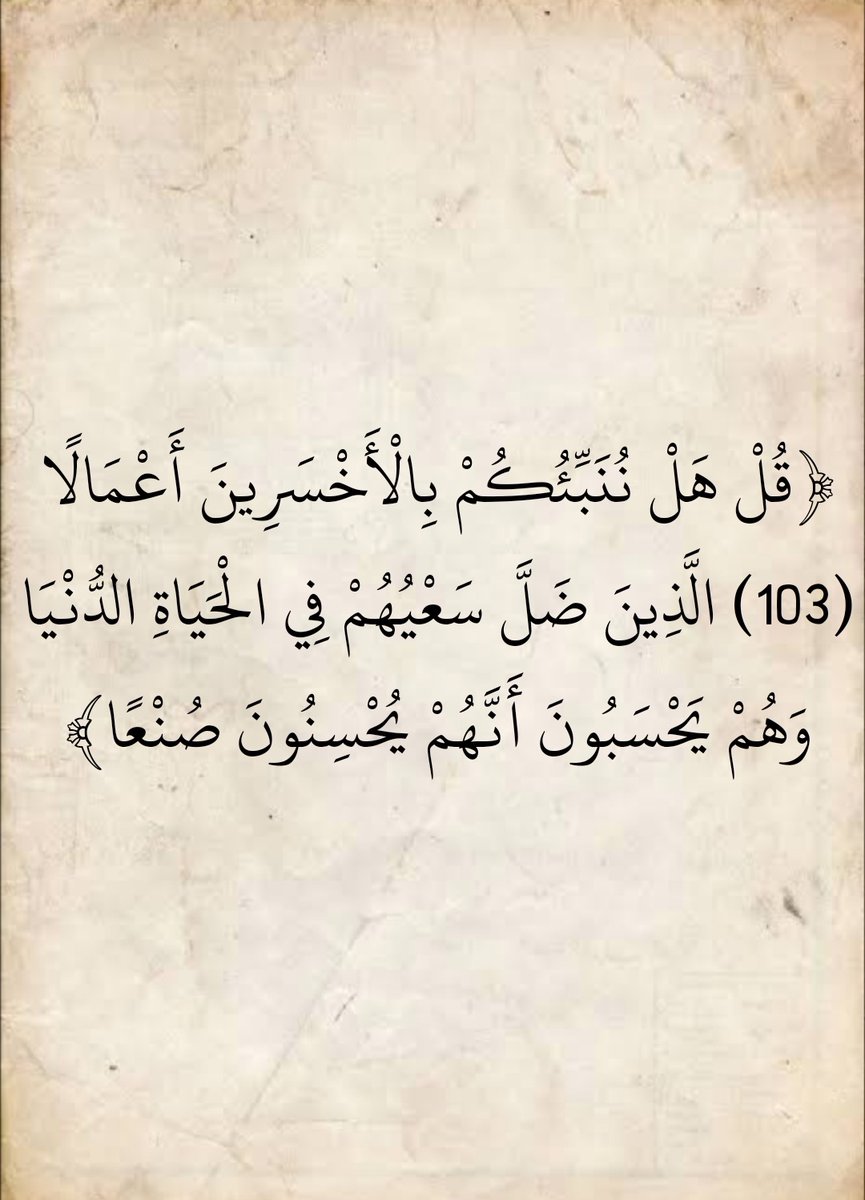 ﴿قُلْ هَلْ نُنَبِّئُكُمْ بِالْأَخْسَرِينَ أَعْمَالًا
(103) الَّذِينَ ضَلَّ سَعْيُهُمْ فِي الْحَيَاةِ الدُّنْيَا
وَهُمْ يَحْسَبُونَ أَنَّهُمْ يُحْسِنُونَ صُنْعًا﴾